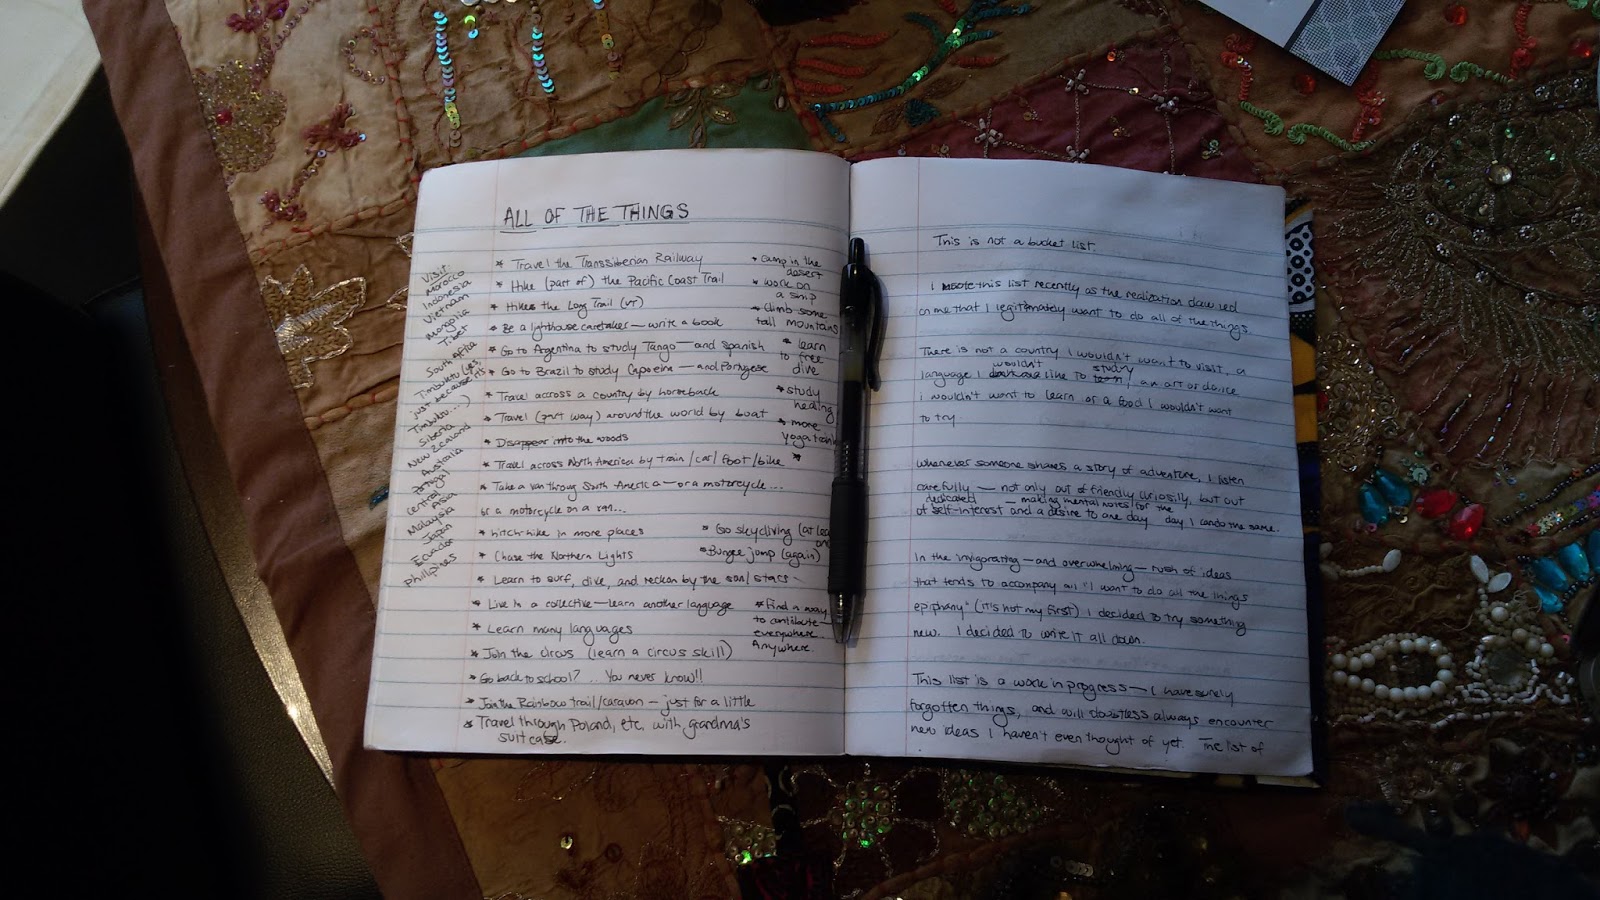 ALL OF THE THINGS
Visit:
Morocco
Indonesia
Vietnam
Mongolia
Tibet
South Africa
Timbuktu (yes,
just because it's
Timbuktu...)
Siberia
New Zealand
Australia
Portugal
Central Asia
Malaysia
Japan
Ecuador
Phillipines
* Travel the Transsiberian Railway
* Hike (part of) the Pacific Coast Trail
* Hike the Long Trail (VT)
* Be a lighthouse caretaker — write a book
* Go to Argentina to study Tango — and Spanish
* Go to Brazil to study Capoeira — and Portugese
* Travel across a country by horseback
* Travel (part way) around the world by boat
* Disappear into the woods
* Travel across North America by train/car/foot/bike
* Take a van throug South America — or a motorcycle...
or a motorcycle on a van...
* hitch-hike in more places
* Chase the Northern Lights
* Learn to surf, dive, and reckon by the sun/stars
* Live in a collective — learn another language
* Learn many languages
* Join the circus (learn a circus skill)
* Go back to school? .. You never know!!
* Join the Rainbow trail/caravan — just for a little
* Travel through Poland, etc. with grandma's
suitcase.
* camp in the
desert
* work on
a ship
* climb some
tall mountains
* learn
to free
dive
* study
healing
* more
yoga
*
* Go skydiving (at
* Bungee jump (again)
* Find a way
to contibute —
everywhere.
Anywhere.
This is not a bucket list.
I wrote this list recently as the realization dawned
on me that I legitimately want to do all of the things.
There is not a country I wouldn't want to visit, a
language I wouldn't like to study, an art or dance
i wouldn't want to learn or a food I wouldn't want
to try.
Whenever someone shares a story of adventure, I listen
carefully — not only out of friendly curiosity, but out
of dedicated self-interest — making mental notes for the
and a desire to one day day I can do the same.
In the invigorating — and overwhelming — rush of ideas
that tends to accompany an "I want to do all the things
epiphany" (it's not my first) I decided to try something
new. I decided to write it all down.
This list is a work in progress — I have surely
forgotten things, and will doubtless always encounter
new ideas I haven't even thought of yet. The list of